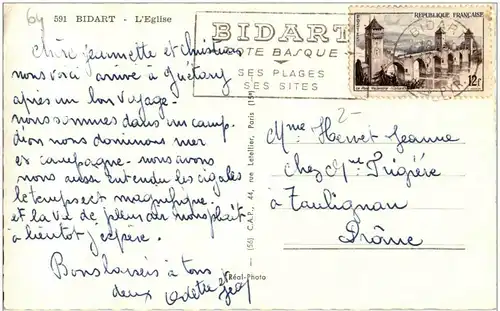 64
591 BIDART - L'Eglise
BIDART
COTE BASQUE
SES PLAGES
SES SITES
REPUBLIQUE FRANÇAISE
12F
Chère jeannette et Christian
nous voici arrivé à Guétary
après un bon voyage -
nous sommes dans un camp-
dion nous dominons mer
et campagne - nous avons
nous aussi entendu les cigales
le temps est magnifique
et la vie de plein air nous plaît
à bientôt j'espère.
Bons baisers à tous
deux Odette et
2-
Mme Hervet Jeanne
chez Mme Frigière
à Taulignan
Drôme
(56) C.A.P., 44, rue Letellier, Paris (15e)
Réal-Photo